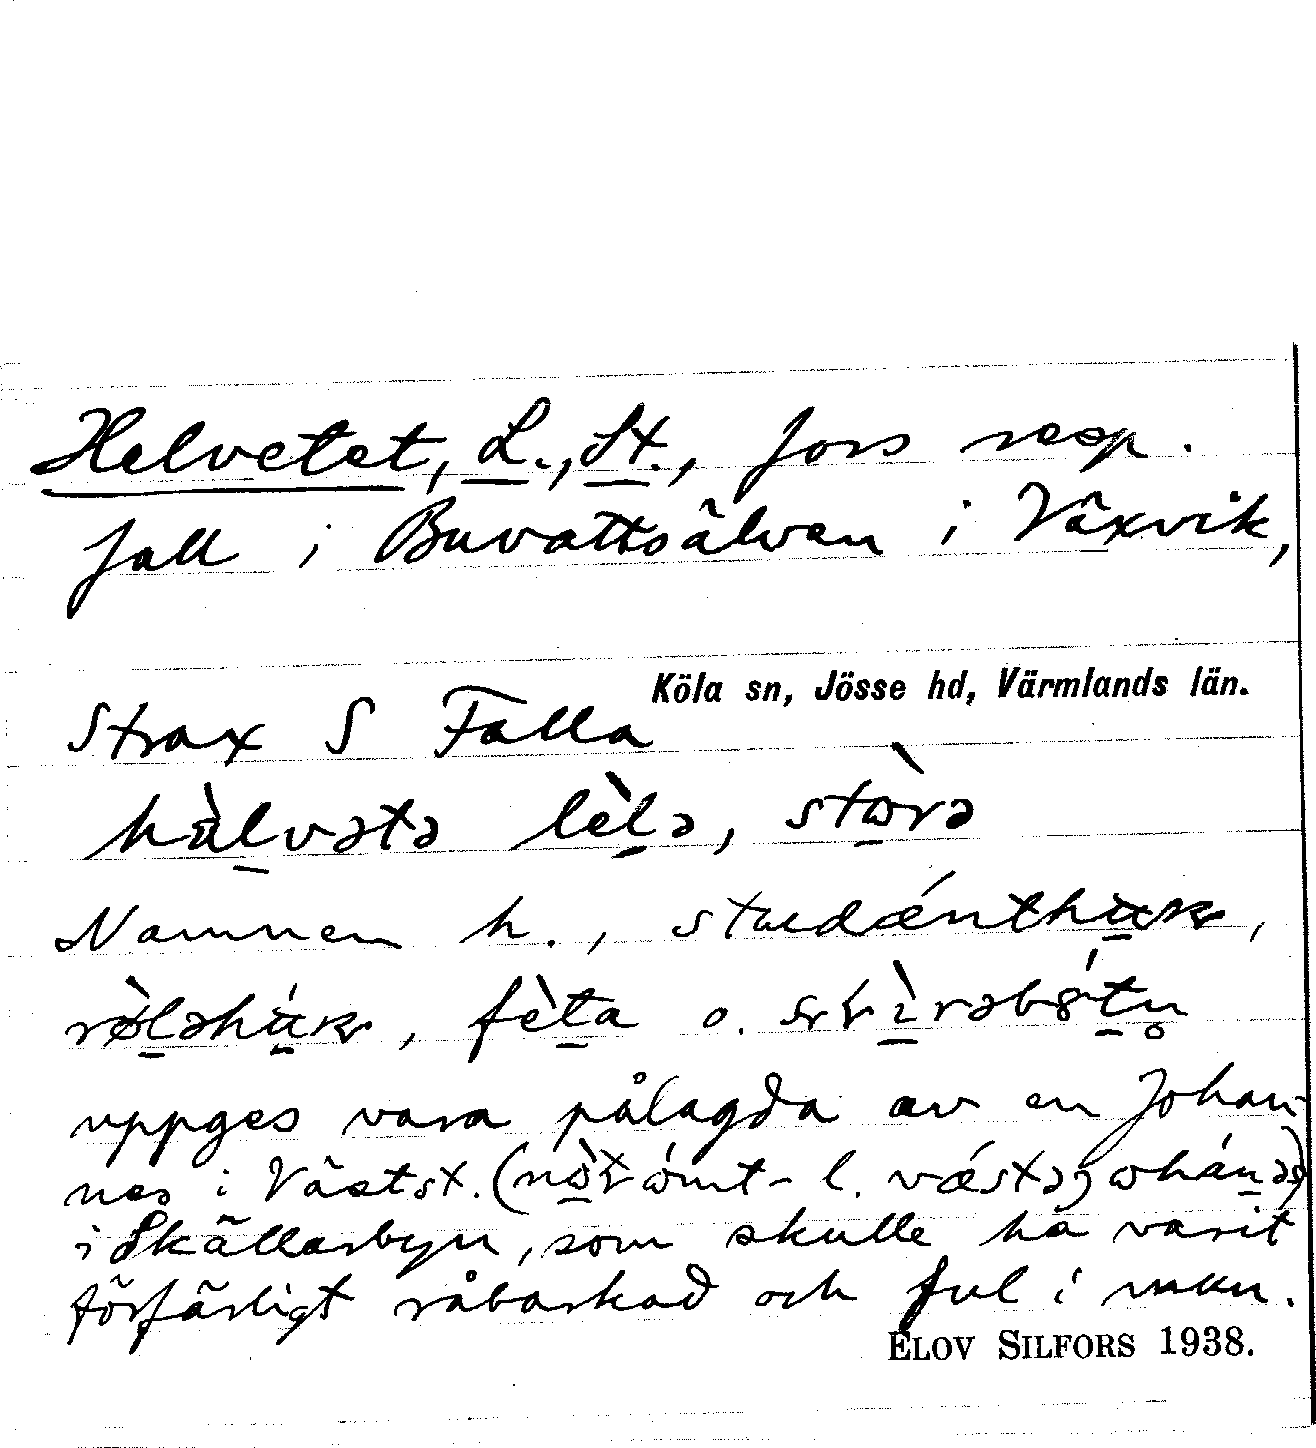 Helvetet, L., St., fors resp.
fall i Buvattsälven i Växvik,
Köla sn, Jösse hd, Värmlands län.
Strax S Falla
hàlvətə lèlə, stòrə
Namnen h., studænthuk,
fèta o.
uppges vara pålagda av en Johan-
nes i Västst.
i Skällarbyn, som skulle ha varit
förfärligt råbarkad och ful i mun.
ELOV SILFORS 1938.